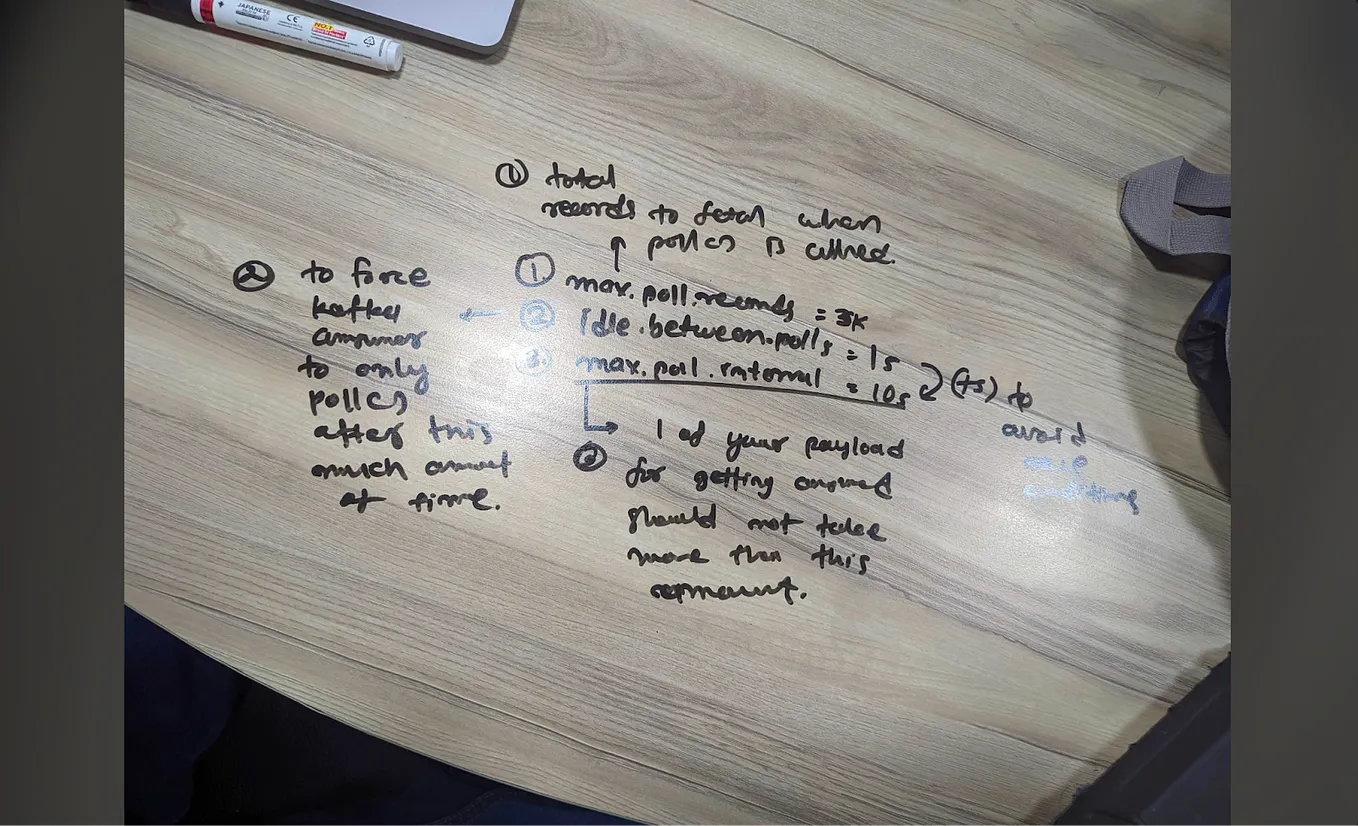 JAPANESE
CE
NO.1
① total
records to fetch when
poll() is called.
② to force
kafka
consumer
to only
poll()
after this
much amount
of time.
①. max.poll.records = 3K
② Idle.between.polls = 1s
③. max.poll.interval = 10s
(ts) to
avoid
conditions
1 of your payload
for getting consumed
should not take
more than this
ammount.